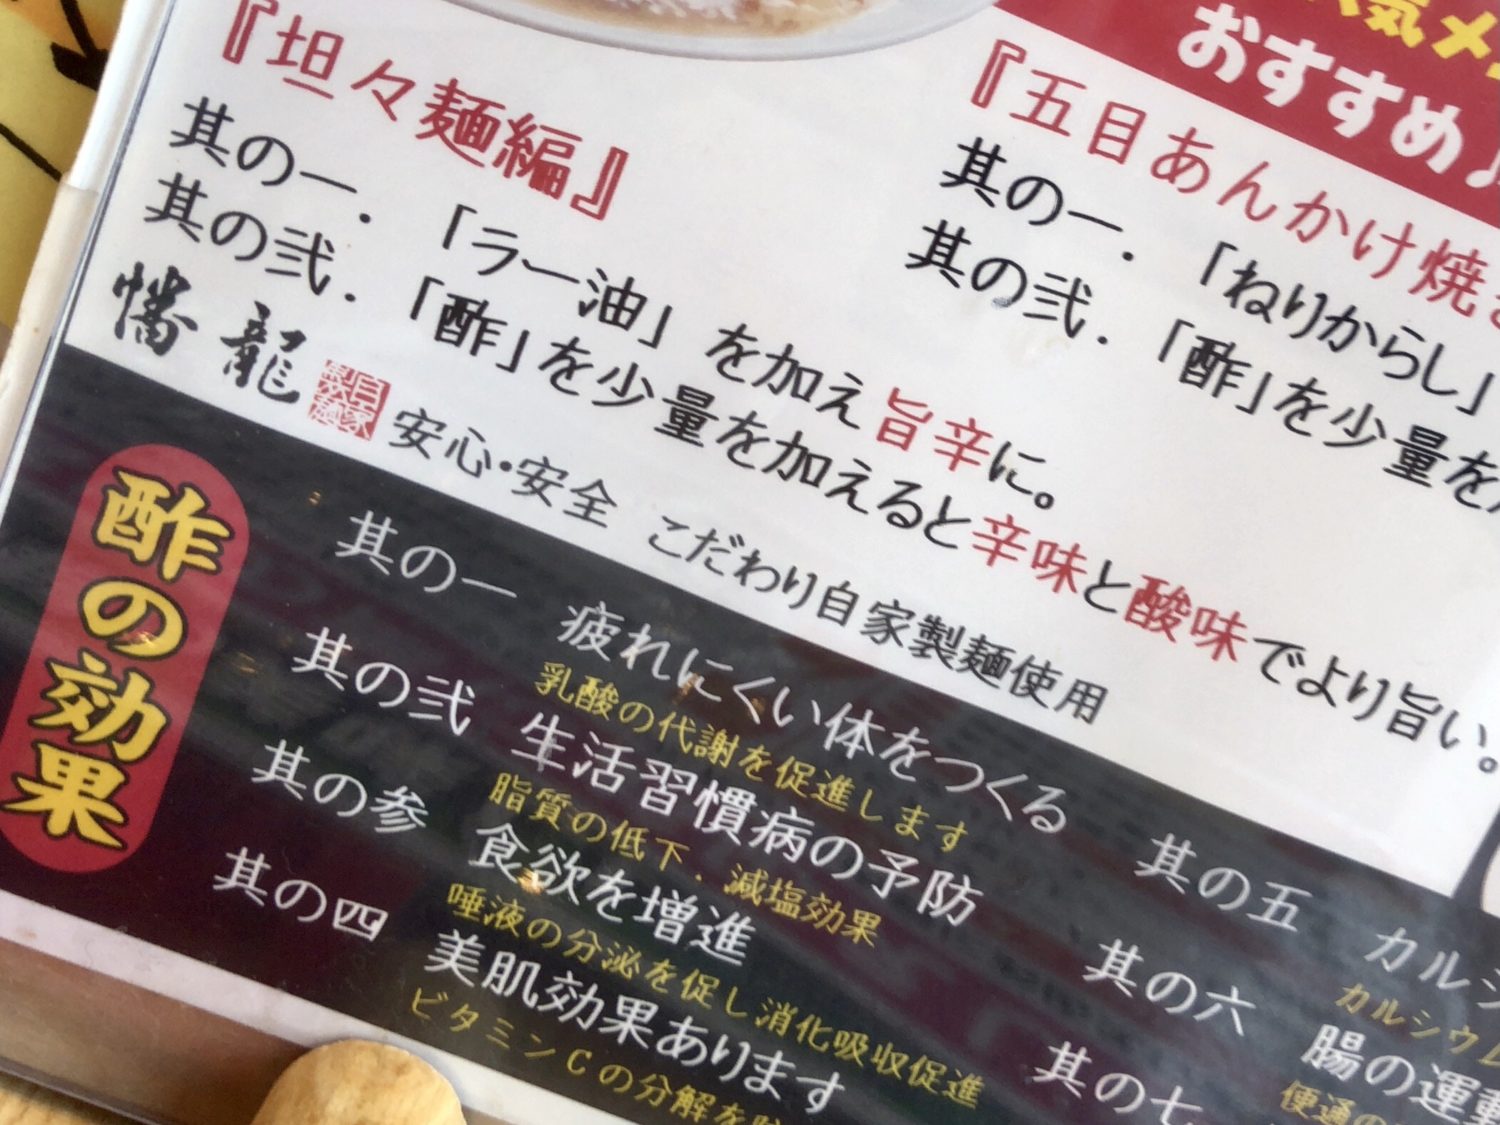 おすすめ
『坦々麺編』
其の一．「ラー油」を加え旨辛に。
其の弐．「酢」を少量を加えると辛味と酸味でより旨い。
『五目あんかけ焼き
其の一．「ねりからし」
其の弐．「酢」を少量を
幡龍 自家製麺 安心・安全 こだわり自家製麺使用
酢の効果
其の一 疲れにくい体をつくる
乳酸の代謝を促進します
其の弐 生活習慣病の予防
脂質の低下．減塩効果
其の参 食欲を増進
唾液の分泌を促し消化吸収促進
其の四 美肌効果あります
ビタミンCの分解を
其の五 カルシ
カルシウム
其の六 腸の運動
便通の
其の七